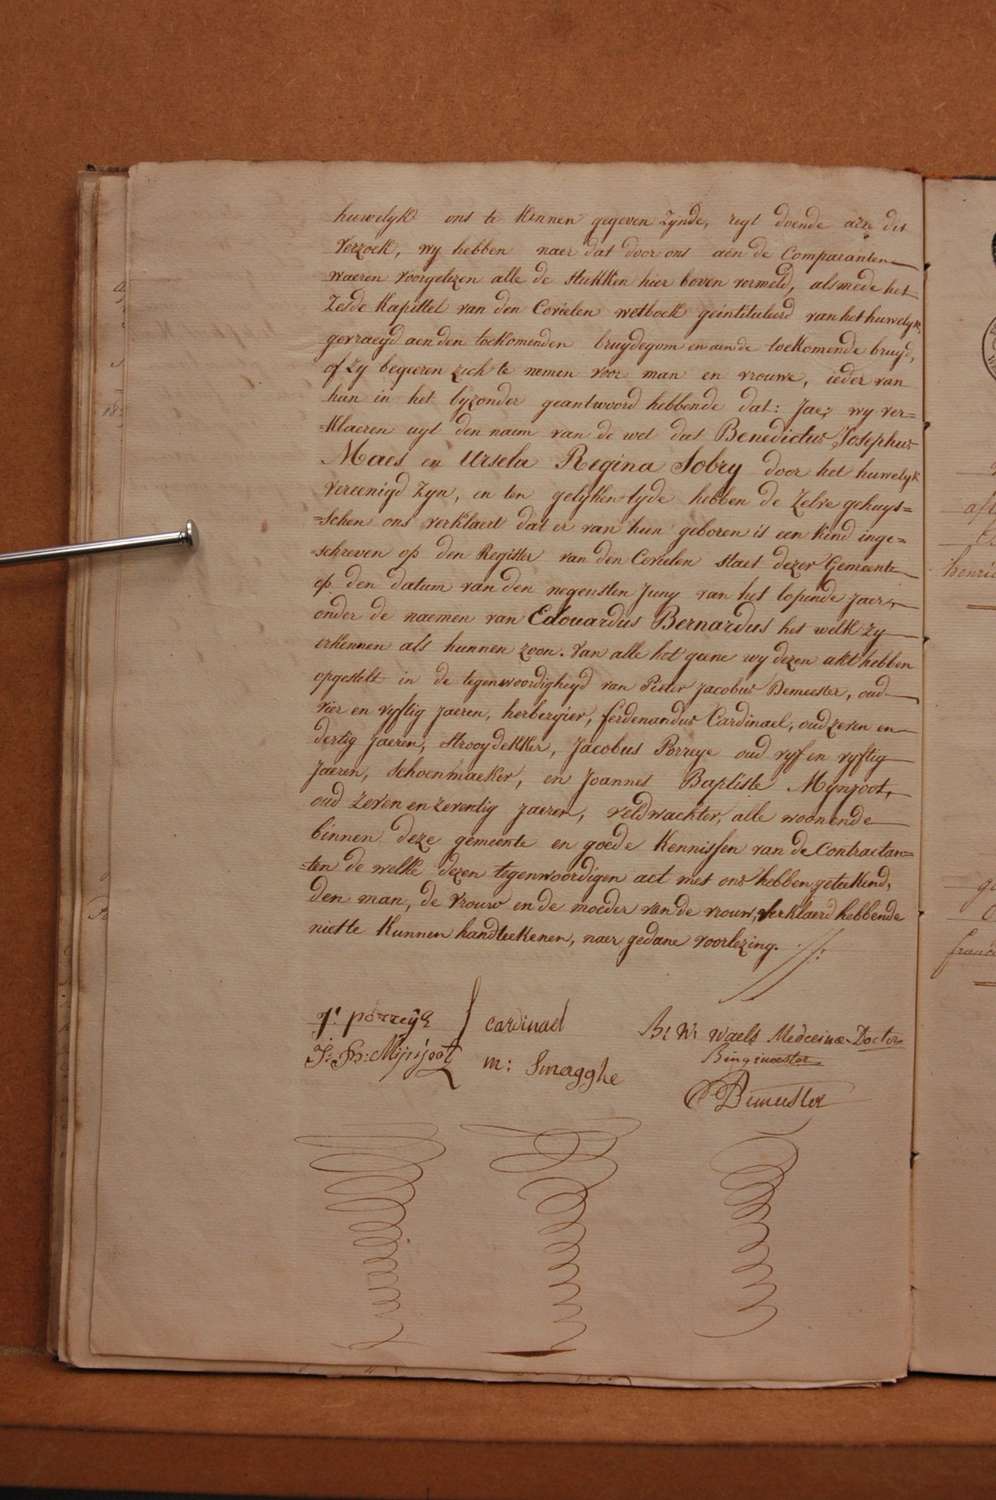 huwelyk ons te kennen gegeven zynde, regt doende aen dit
verzoek, wy hebben naer dat door ons aen de Comparanten
waeren voorgelezen alle de stukken hier boven vermeld, alsmede het
zesde kapittel van den Civielen wetboek geintituleerd van het huwelyk,
gevraegd aen den toekomenden bruydegom en aende toekomende bruyd,
of zy begeeren zich te nemen voor man en vrouwe, ieder van
hun in het byzonder geantwoord hebbende dat: Jae; wy ver=
=klaeren uyt den naem van de wet dat Benedictus Josephus
Maes en Ursela Regina Sobry door het huwelyk
vereenigd zyn, en ten gelyken tyde hebben de zelve gehuys=
=schen ons verklaert dat er van hun geboren is een kind inge=
=schreven op den Register van den Civielen staet dezer Gemeente
op den datum van den negensten Juny van het lopende Jaer,
onder de naemen van Edouardus Bernardus het welk zy
erkennen als hunnen zoon. Van alle het geene wy dezen akt hebben
opgestelt in de tegenwoordigheyd van Pieter Jacobus Demeester, oud
vier en vyftig Jaeren, herbergier, ferdenandus Cardinael, oud zeven en
dertig Jaeren, strooydekker, Jacobus Porreye oud vyf en vyftig
Jaeren, schoenmaeker, en Joannes Baptiste Mynjoot,
oud zeven en zeventig Jaeren, veldwachter, alle woonende
binnen deze gemeente en goede kennissen van de Contractan=
=ten de welke dezen tegenwoordigen act met ons hebben geteekend,
den man, de vrouw en de moeder van de vrouw, verklaerd hebbende
niet te kunnen handteekenen, naer gedane voorlezing.
j: porreÿe cardinael
J: Bp: Mijnjoot m: Smagghe
Waels Medecinæ Doctor
Burgmeester
Demeester
18
henri